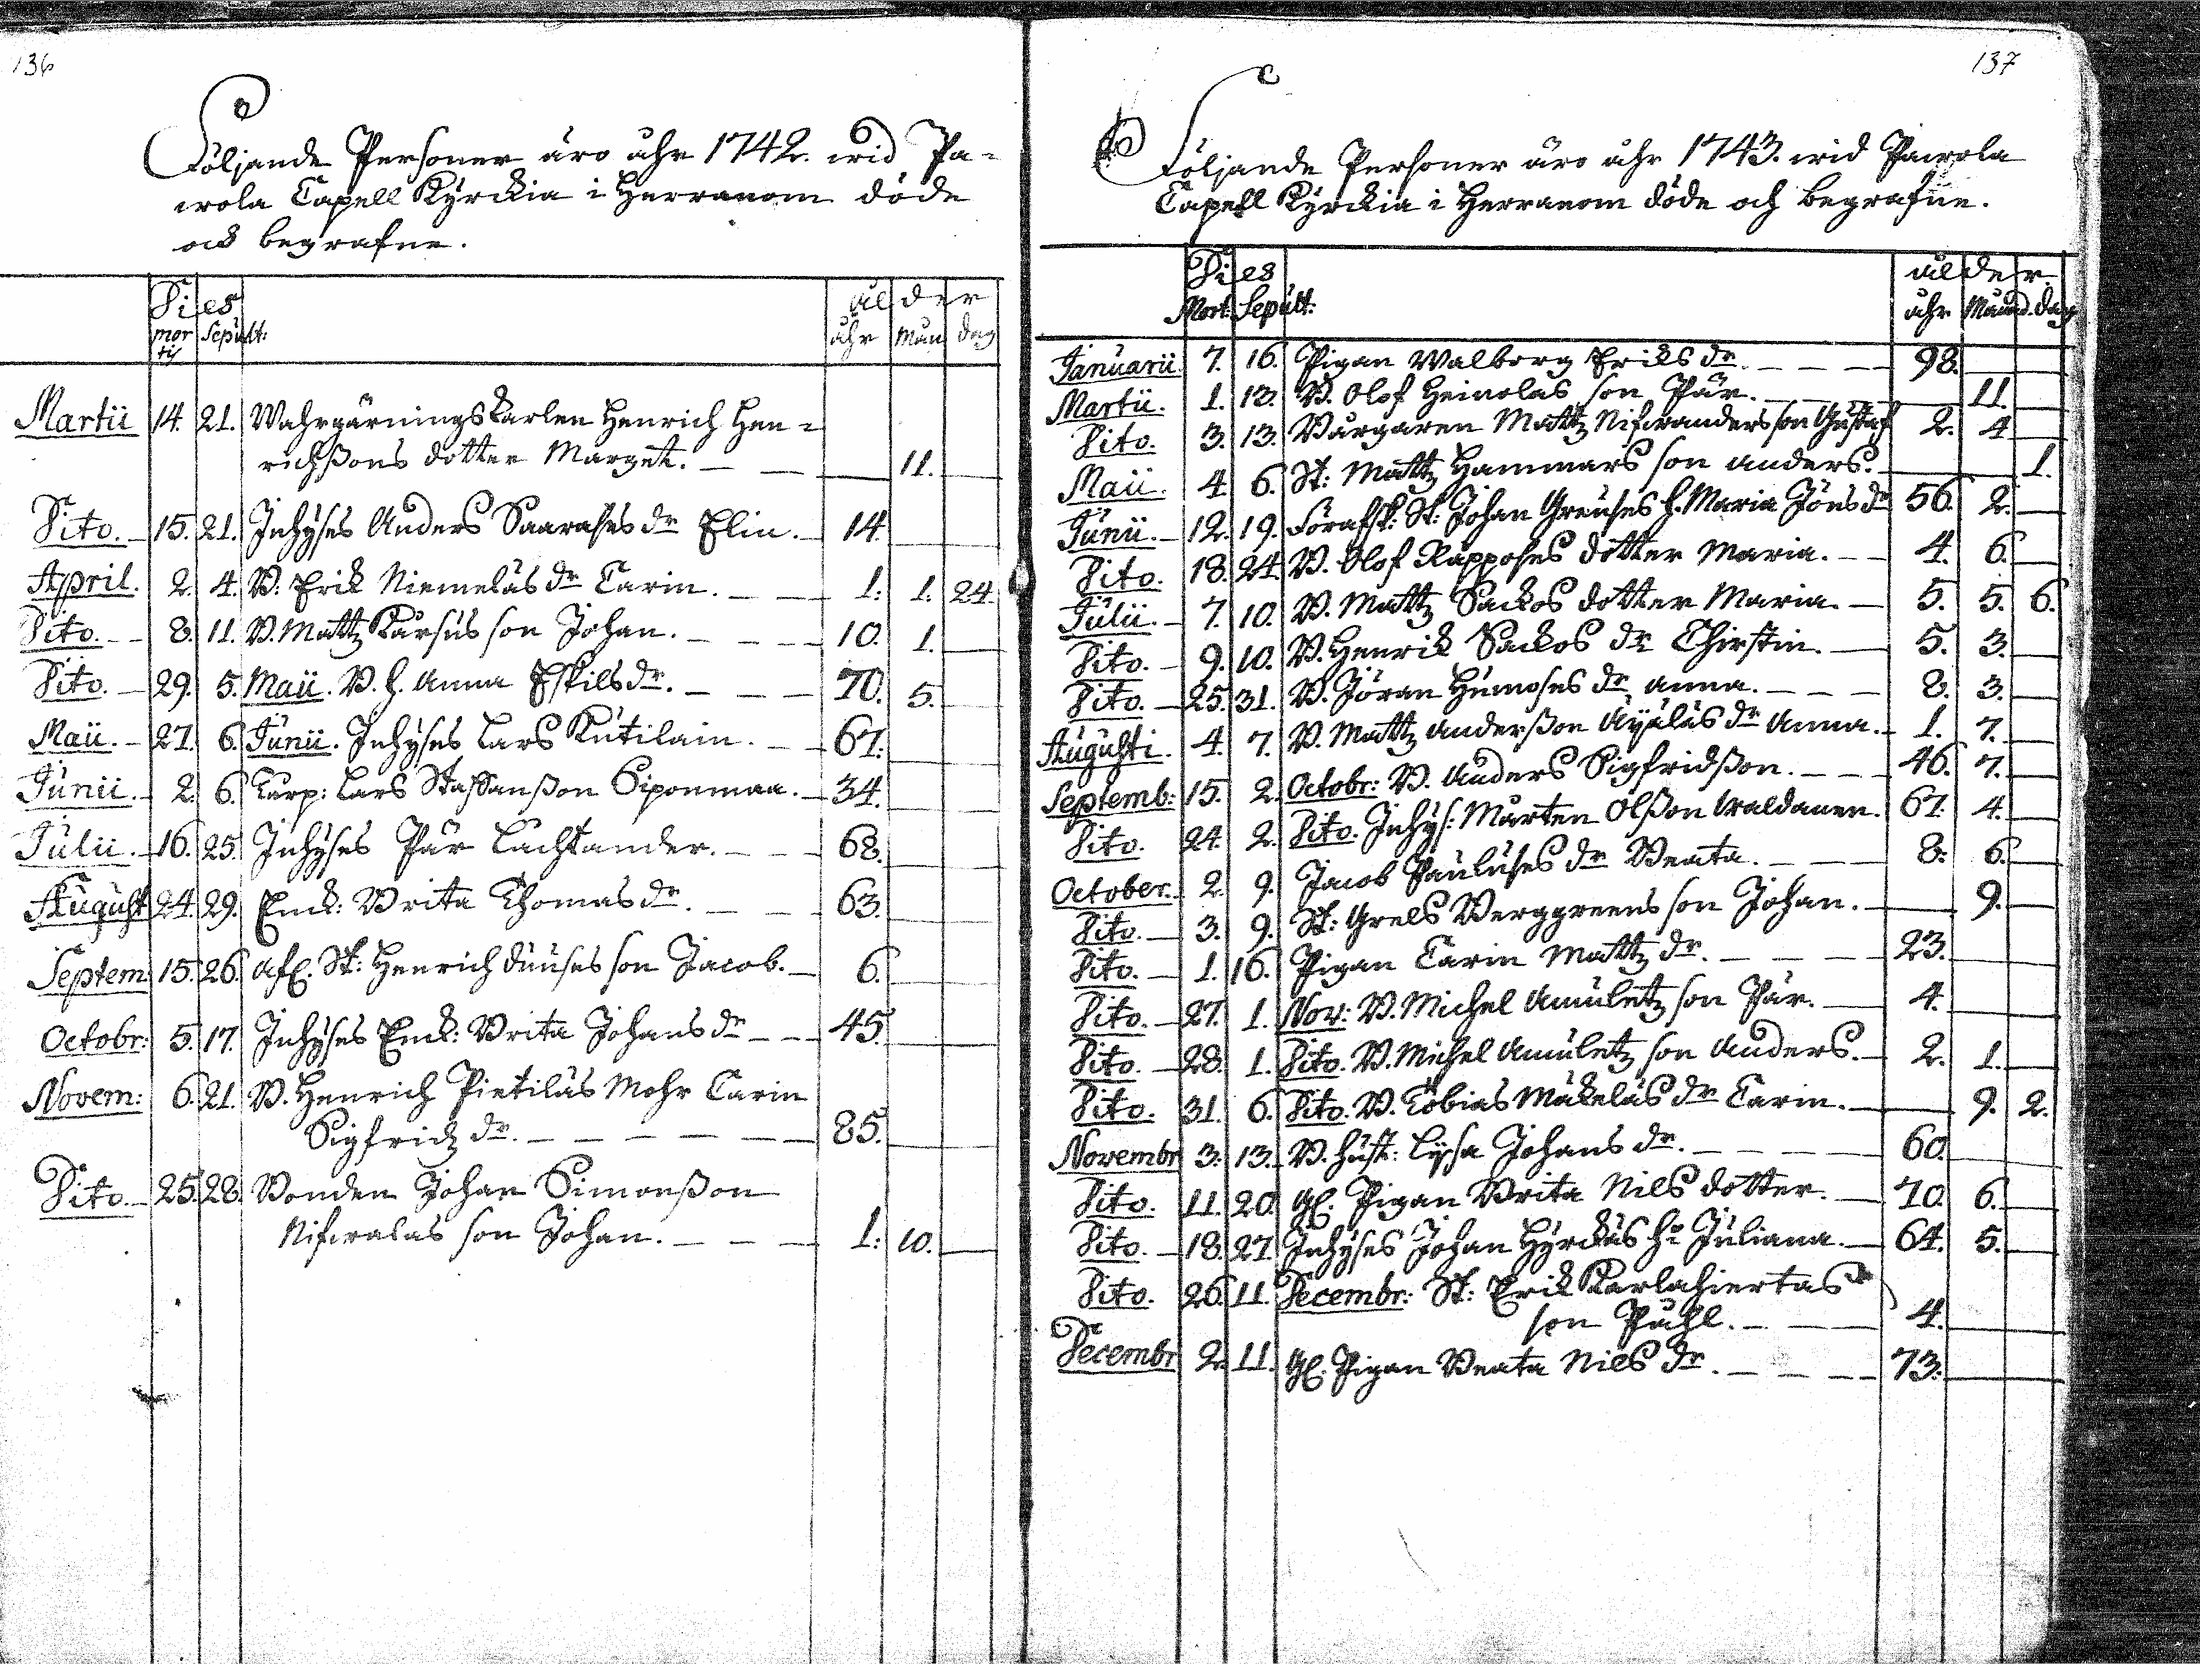 136
Följande Personer äro åhr 1742. wid Pa-
wola Capell Kÿrckia i Herranom döde
och begrafne.
Dies ålder
mortis Sepult: åhr Mån dag
Martii 14. 21. Wahrgärningskarlen Henrich Hen=
richßons dotter Marget. 11.
Dito. 15. 21. Inhyses Anders Saarases dr Elin. 14.
April. 2. 4. B: Erik Niemeläs dr Carin. 1. 1. 24.
Dito. 8. 11. B. Mattz Karsus son Johan. 10. 1.
Dito. 29. 5. Maii. B. h. Anna Eskilsdr. 70. 5.
Maii. 27. 6. Junii. Inhyses Lars Kutilain. 67.
Junii. 2. 6. Karp: Lars Staffanßon Siponmaa. 34.
Julii. 16. 25. Inhyses Pär Lachtander. 68.
August 24. 29. Enck: Brita Thomasdr. 63.
Septem. 15. 26. afl. St: Henrich duuses son Jacob. 6.
Octobr: 5. 17. Inhyses Enck: Brita Johansdr 45.
Novem: 6. 21. B. Henrich Pietiläs Mohr Carin
Sigfridz dr. 85.
Dito. 25. 28. Bonden Johan Simonßon
Niskalas son Johan. 1. 10.
137
Följande Personer äro åhr 1743. wid Pawola
Capell Kÿrckia i Herranom döde och begrafne.
Dies ålder.
Mort: Sepult: åhr Månad. dag
Januarii. 7. 16. Pigan Walborg Eriks dr. 98.
Martii. 1. 13. B. Olof Heinolas son Pär. 11.
Dito. 3. 13. Borgaren Mattz son Gustaf 2. 4
Maii. 4. 6. St: Mattz Hammars son Anders. 1.
Junii. 12. 19. St: Johan Greuses h. Maria Jöns dr 56. 2.
Dito. 18. 24. B. Olof Rapposes dotter Maria. 4. 6.
Julii. 7. 10. B. Mattz Sackos dotter Maria. 5. 5. 6.
Dito. 9. 10. B. Henrik Sackos dr Chirstin. 5. 3.
Dito. 25. 31. B. Jöran Humoses dr Anna. 8. 3.
Augusti. 4. 7. B. Mattz Anderßon Äyäläs dr Anna. 1. 7.
Septemb: 15. 2. Octobr: B. Anders Sigfridßon. 46. 7.
Dito. 24. 2. Dito. Inhys: Mårten Olßon Waldanen. 67. 4.
October. 2. 9. Jacob Pauluses dr Beata. 8. 6.
Dito. 3. 9. St: Grels Berggreens son Johan. 9.
Dito. 1. 16. Pigan Carin Mattz dr. 23.
Dito. 27. 1. Nov: B. Michel Amuletz son Pär. 4.
Dito. 28. 1. Dito. B. Michel Amuletz son Anders. 2. 1.
Dito. 31. 6. Dito. B. Tobias Mäkeläs dr Carin. 9. 2.
Novembr 3. 13. B. hust: Lysa Johans dr. 60.
Dito. 11. 20. Gl. Pigan Brita Nils dotter. 70. 6.
Dito. 18. 27. Inhyses Johan Hyrckäs ho Juliana. 64. 5.
Dito. 26. 11. Decembr: St: Erik Karlahiertas
son Påhl. 4.
Decembr 2. 11. Gl. Pigan Beata Nils dr. 73.